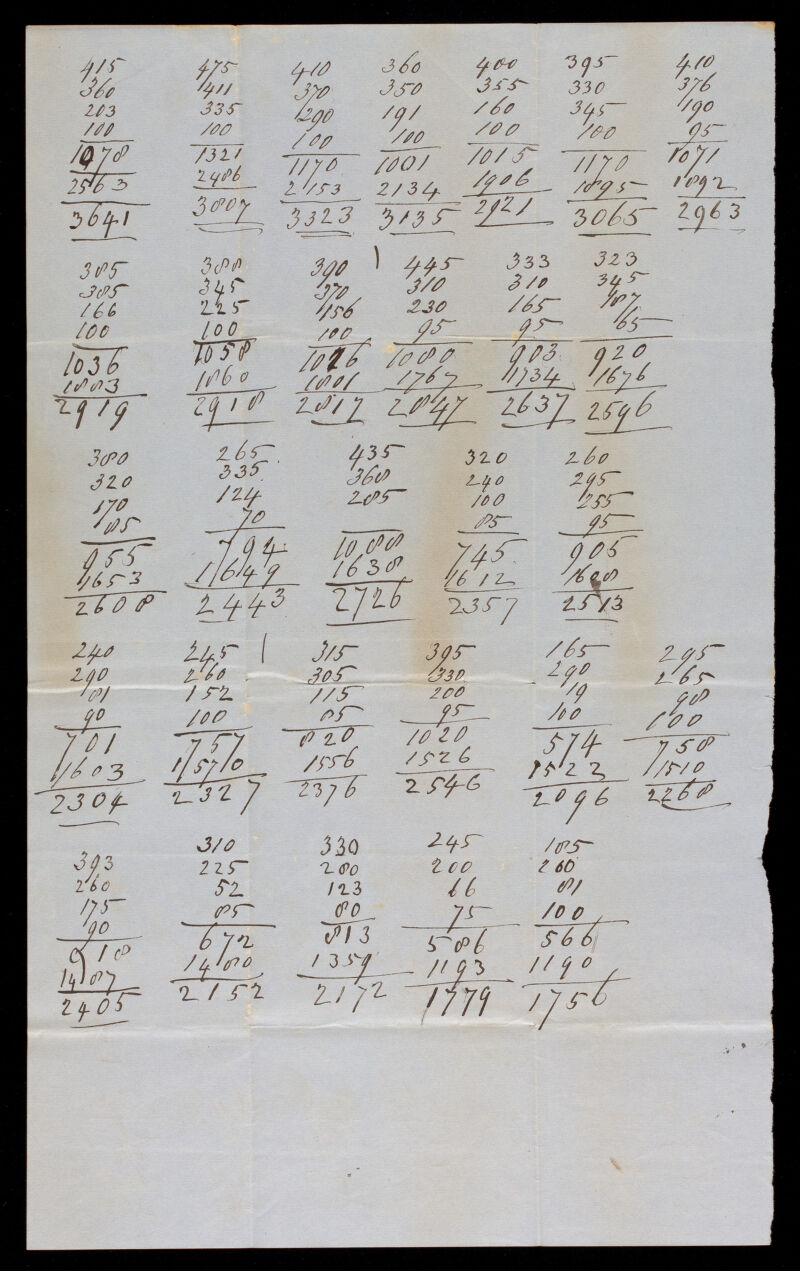 415 475 410 360 400 395 410
360 411 370 350 355 330 376
203 335 290 191 160 345 190
100 100 100 100 100 100 95
1078 1321 1170 1001 1015 1170 1071
2563 2486 2153 2134 1906 1895 1892
3641 3807 3323 3135 2921 3065 2963
385 388 390 445 333 323
385 345 370 310 310 345
166 225 156 230 165 187
100 100 100 95 95 65
1036 1058 1026 1080 903 920
1883 1860 1801 1767 1734 1676
2919 2918 2817 2847 2637 2596
380 265 435 320 260
320 335 368 240 295
170 124 285 100 255
85 70 85 95
955 794 1088 745 905
1653 1649 1638 1612 1608
2608 2443 2726 2357 2513
240 245 315 395 165 295
290 260 305 330 290 265
81 152 115 200 19 98
90 100 85 95 100 100
701 757 820 1020 574 758
1603 1570 1556 1526 1522 1510
2304 2327 2376 2546 2096 2268
393 310 330 245 185
260 225 280 200 200
175 52 123 66 81
90 85 80 75 100
918 672 813 586 566
1487 1480 1359 1193 1190
2405 2152 2172 1779 1756